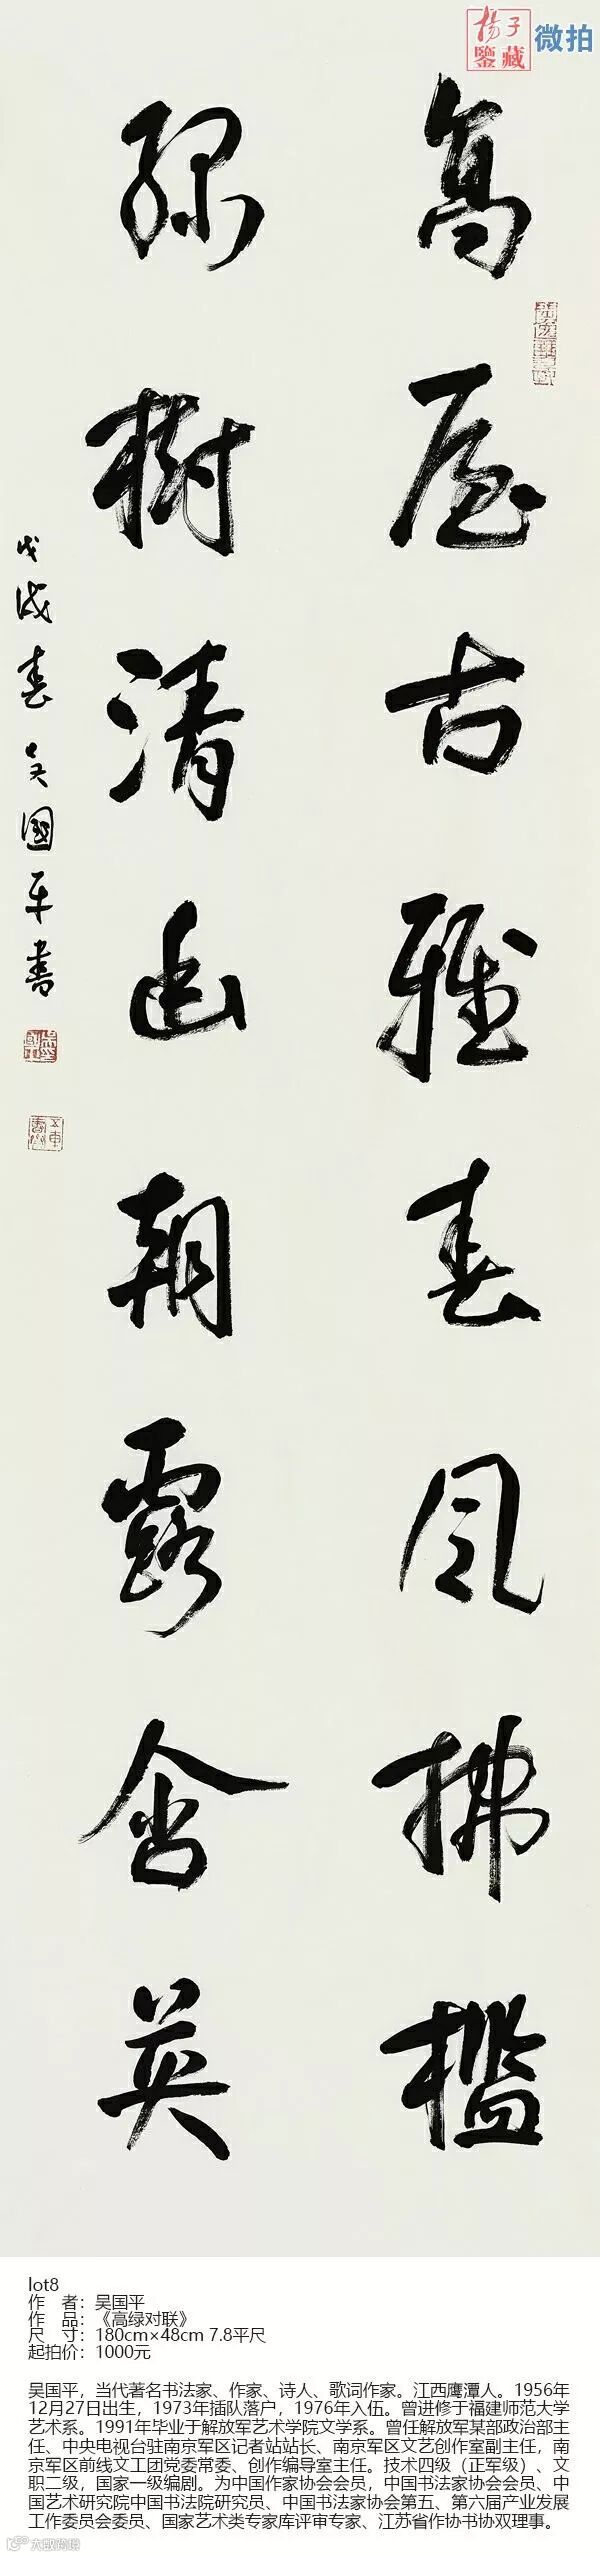 揚子
鑒藏
微拍
高屋古雅春风拂檻
绿樹清幽朝露含英
戊戌春吴國平書
lot8
作 者：吴国平
作 品：《高绿对联》
尺 寸：180cm×48cm 7.8平尺
起拍价：1000元
吴国平，当代著名书法家、作家、诗人、歌词作家。江西鹰潭人。1956年
12月27日出生，1973年插队落户，1976年入伍。曾进修于福建师范大学
艺术系。1991年毕业于解放军艺术学院文学系。曾任解放军某部政治部主
任、中央电视台驻南京军区记者站站长、南京军区文艺创作室副主任，南
京军区前线文工团党委常委、创作编导室主任。技术四级（正军级）、文
职二级，国家一级编剧。为中国作家协会会员，中国书法家协会会员、中
国艺术研究院中国书法院研究员、中国书法家协会第五、第六届产业发展
工作委员会委员、国家艺术类专家库评审专家、江苏省作协书协双理事。